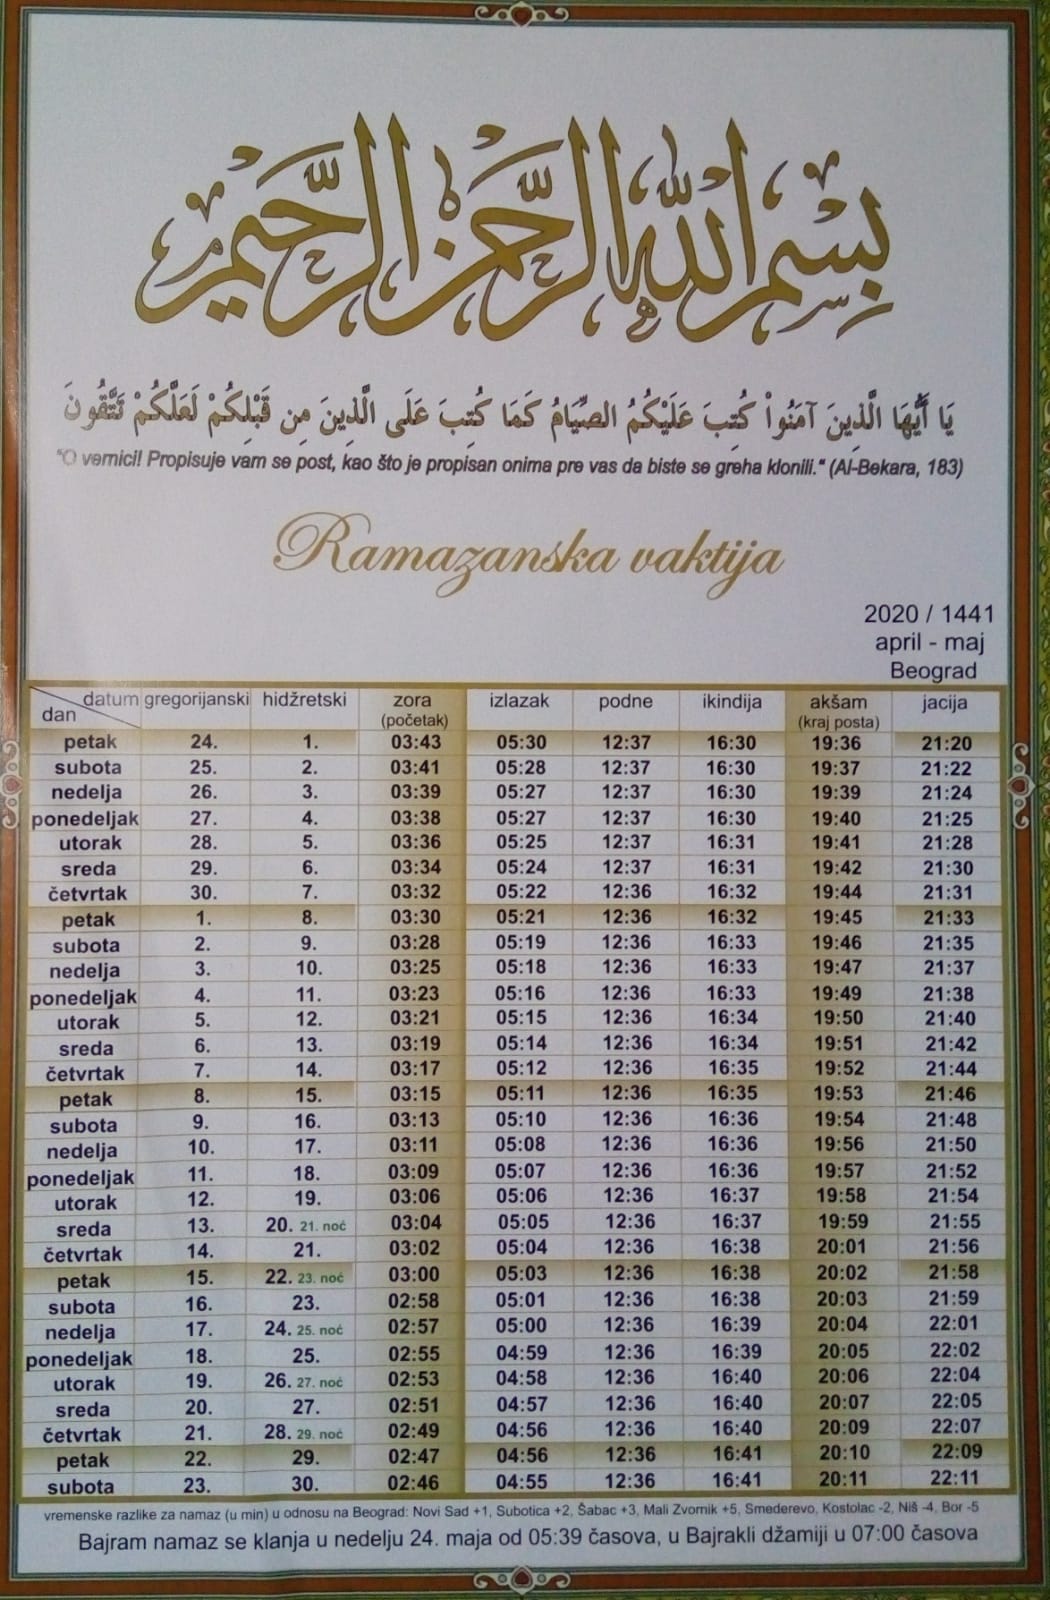 بسم الله الرحمن الرحيم
يَا أَيُّهَا الَّذِينَ آمَنُواْ كُتِبَ عَلَيْكُمُ الصِّيَامُ كَمَا كُتِبَ عَلَى الَّذِينَ مِن قَبْلِكُمْ لَعَلَّكُمْ تَتَّقُونَ
"O vernici! Propisuje vam se post, kao što je propisan onima pre vas da biste se greha klonili." (Al-Bekara, 183)
Ramazanska vaktija
2020 / 1441
april - maj
Beograd
dan datum gregorijanski hidžretski zora (početak) izlazak podne ikindija akšam (kraj posta) jacija
petak 24. 1. 03:43 05:30 12:37 16:30 19:36 21:20
subota 25. 2. 03:41 05:28 12:37 16:30 19:37 21:22
nedelja 26. 3. 03:39 05:27 12:37 16:30 19:39 21:24
ponedeljak 27. 4. 03:38 05:27 12:37 16:30 19:40 21:25
utorak 28. 5. 03:36 05:25 12:37 16:31 19:41 21:28
sreda 29. 6. 03:34 05:24 12:37 16:31 19:42 21:30
četvrtak 30. 7. 03:32 05:22 12:36 16:32 19:44 21:31
petak 1. 8. 03:30 05:21 12:36 16:32 19:45 21:33
subota 2. 9. 03:28 05:19 12:36 16:33 19:46 21:35
nedelja 3. 10. 03:25 05:18 12:36 16:33 19:47 21:37
ponedeljak 4. 11. 03:23 05:16 12:36 16:33 19:49 21:38
utorak 5. 12. 03:21 05:15 12:36 16:34 19:50 21:40
sreda 6. 13. 03:19 05:14 12:36 16:34 19:51 21:42
četvrtak 7. 14. 03:17 05:12 12:36 16:35 19:52 21:44
petak 8. 15. 03:15 05:11 12:36 16:35 19:53 21:46
subota 9. 16. 03:13 05:10 12:36 16:36 19:54 21:48
nedelja 10. 17. 03:11 05:08 12:36 16:36 19:56 21:50
ponedeljak 11. 18. 03:09 05:07 12:36 16:36 19:57 21:52
utorak 12. 19. 03:06 05:06 12:36 16:37 19:58 21:54
sreda 13. 20. 21. noć 03:04 05:05 12:36 16:37 19:59 21:55
četvrtak 14. 21. 03:02 05:04 12:36 16:38 20:01 21:56
petak 15. 22. 23. noć 03:00 05:03 12:36 16:38 20:02 21:58
subota 16. 23. 02:58 05:01 12:36 16:38 20:03 21:59
nedelja 17. 24. 25. noć 02:57 05:00 12:36 16:39 20:04 22:01
ponedeljak 18. 25. 02:55 04:59 12:36 16:39 20:05 22:02
utorak 19. 26. 27. noć 02:53 04:58 12:36 16:40 20:06 22:04
sreda 20. 27. 02:51 04:57 12:36 16:40 20:07 22:05
četvrtak 21. 28. 29. noć 02:49 04:56 12:36 16:40 20:09 22:07
petak 22. 29. 02:47 04:56 12:36 16:41 20:10 22:09
subota 23. 30. 02:46 04:55 12:36 16:41 20:11 22:11
vremenske razlike za namaz (u min) u odnosu na Beograd: Novi Sad +1, Subotica +2, Šabac +3, Mali Zvornik +5, Smederevo, Kostolac -2, Niš -4, Bor -5
Bajram namaz se klanja u nedelju 24. maja od 05:39 časova, u Bajrakli džamiji u 07:00 časova